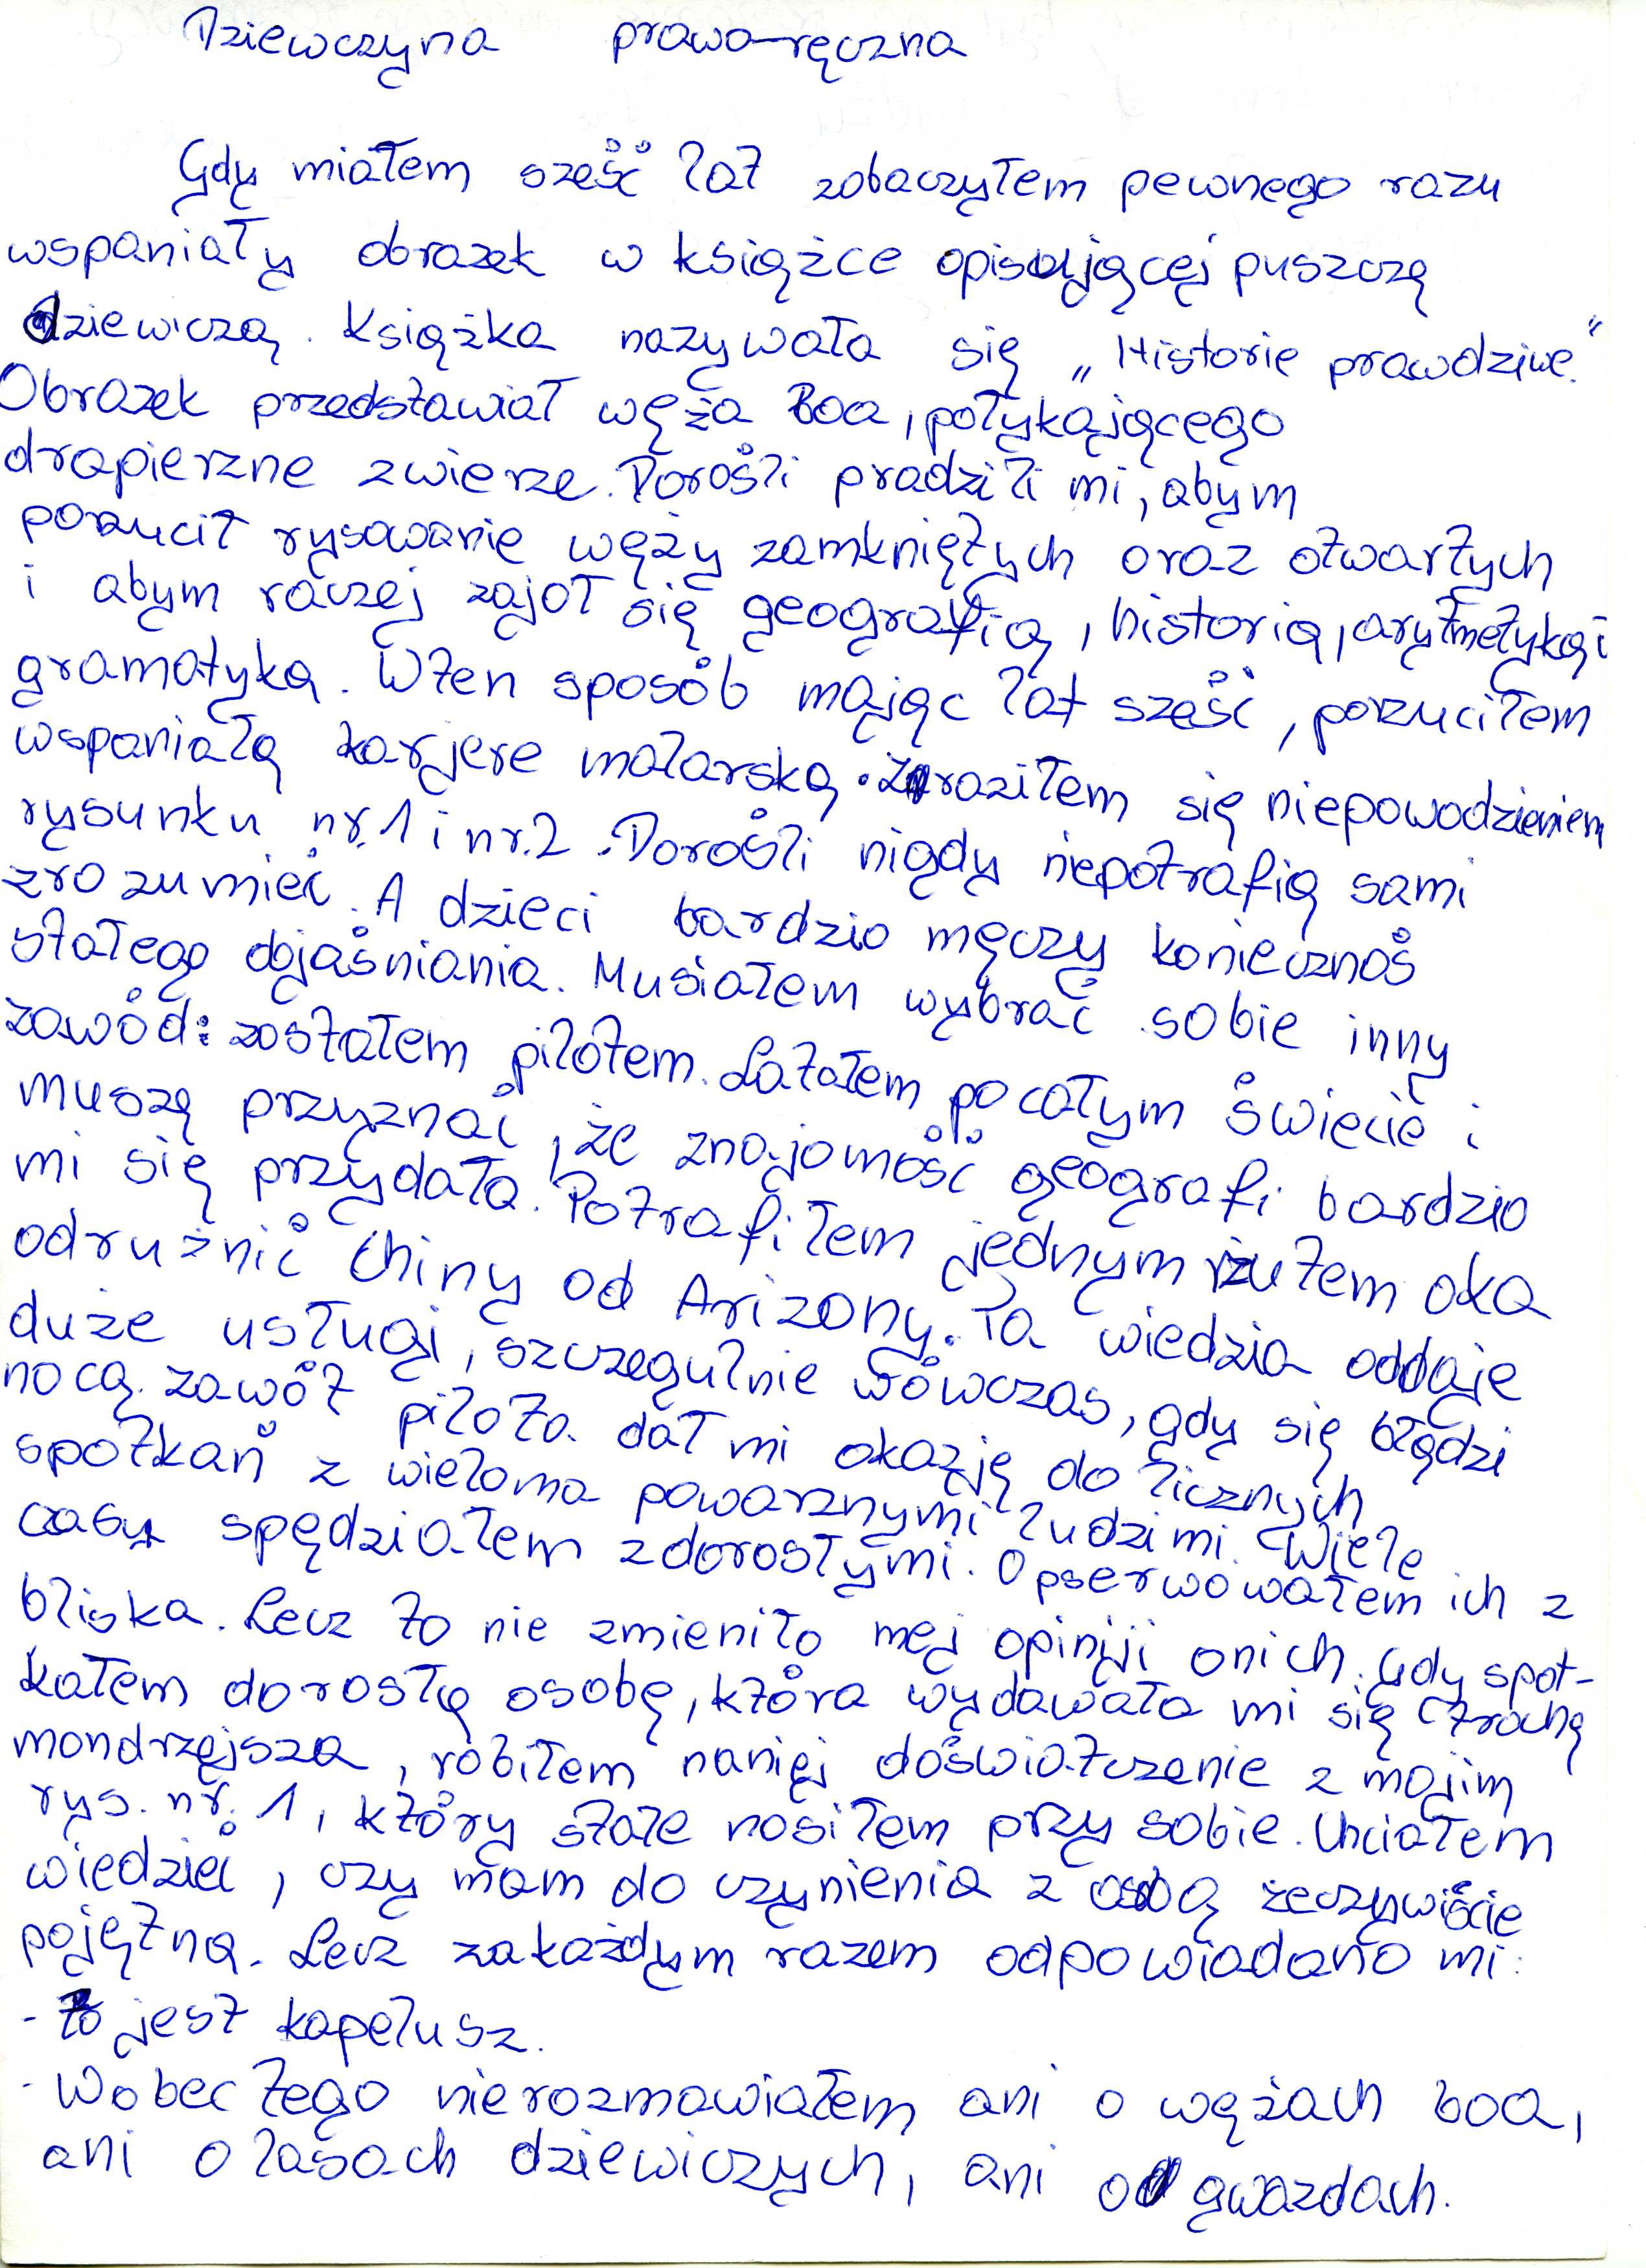 Dziewczyna prawo-ręczna
Gdy miałem sześć lat zobaczyłem pewnego razu
wspaniały obrazek w książce opisującej puszczę
dziewiczą. Książka nazywała się „Historie prawdziwe."
Obrazek przedstawiał węża Boa, połykającego
drapierzne zwierze. Dorośli pradzili mi, abym
porzucił rysowanie węży zamkniętych oraz otwartych
i abym raczej zajoł się geografią, historią, arytmetyką i
gramatyką. Wten sposób mając lat sześć, porzuciłem
wspaniałą karjere malarską. Zraziłem się niepowodzieniem
rysunku nr. 1 i nr. 2. Dorośli nigdy niepotrafią sami
zrozumieć. A dzieci bardzio męczy koniecznoś
stałego objaśniania. Musiałem wybrać sobie inny
zawód: zostałem pilotem. Latałem po całym świecie i
muszę przyznać, że znajomość geografi bardzio
mi się przydała. Potrafiłem jednym żutem oka
odrużnić Chiny od Arizony. Ta wiedzia oddaje
duże usługi, szczegulnie wówczas, gdy się błądzi
nocą. zawót pilota dał mi okazję do licznych
spotkań z wieloma powarznymi ludzimi. Wiele
czasy spędziałem zdorosłymi. Opserwowałem ich z
bliska. Lecz to nie zmieniło mej opinji onich. Gdy spot-
kałem dorosłą osobę, która wydawała mi się trochę
mondrzejsza, robiłem naniej doświatczenie z mojim
rys. nr. 1, który stale nosiłem przy sobie. Chciałem
wiedzieć, czy mam do czynienia z osobą żeczywiście
pojętną. Lecz zakażdym razem odpowiadano mi:
- To jest kapelusz.
- Wobec tego nierozmawiałem ani o wężach boa,
ani o lasach dziewiczych, ani o gwazdach.